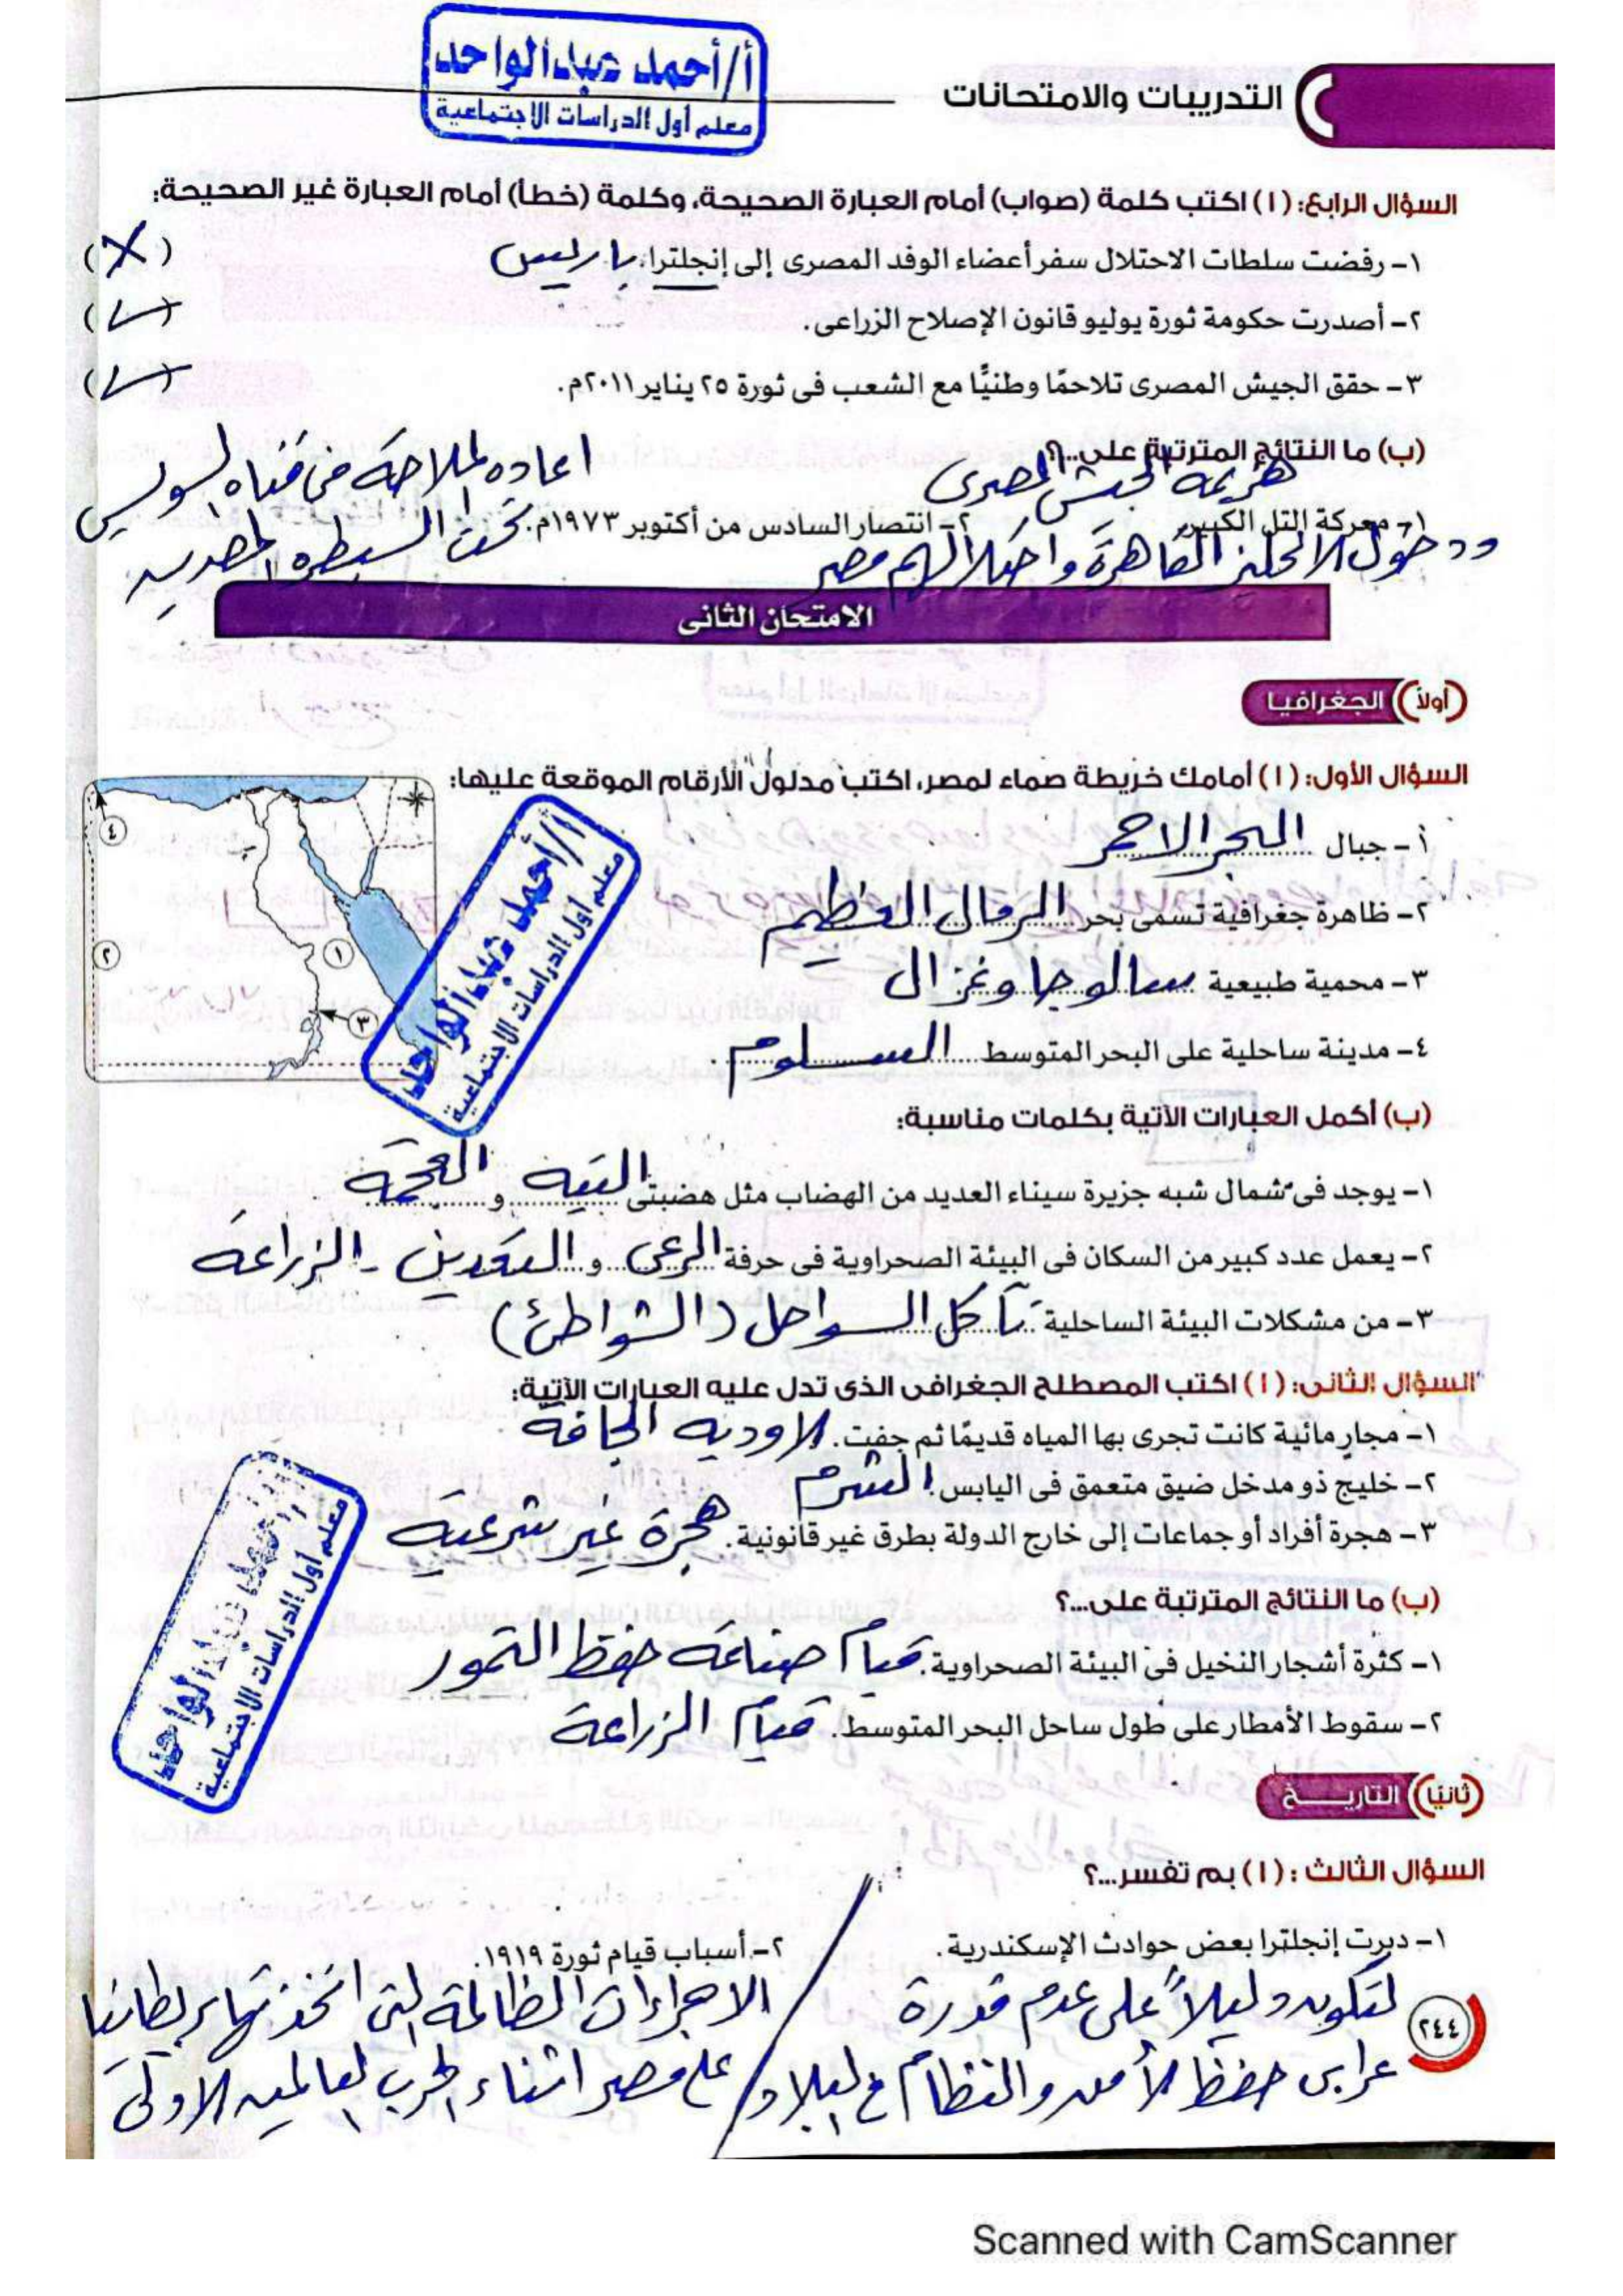 أ/أحمد عبدالواحد
معلم أول الدراسات الاجتماعية
التدريبات والامتحانات
السؤال الرابع: (١) اكتب كلمة (صواب) أمام العبارة الصحيحة، وكلمة (خطأ) أمام العبارة غير الصحيحة:
١- رفضت سلطات الاحتلال سفر أعضاء الوفد المصرى إلى إنجلترا. باريس (X)
٢- أصدرت حكومة ثورة يوليو قانون الإصلاح الزراعى. (✓)
٣- حقق الجيش المصرى تلاحمًا وطنيًّا مع الشعب فى ثورة ٢٥ يناير ٢٠١١م. (✓)
(ب) ما النتائج المترتبة على...؟
هزيمة الجيش المصرى
اعاده الملاحة فى قناه السويس
١- معركة التل الكبير. ٢- انتصار السادس من أكتوبر ١٩٧٣م. تحت السيطره المصريه
ودخول الانجليز القاهرة واحتلالهم مصر
الامتحان الثانى
أولاً الجغرافيا
السؤال الأول: (١) أمامك خريطة صماء لمصر، اكتب مدلول الأرقام الموقعة عليها:
أ- جبال البحر الاحمر
٢- ظاهرة جغرافية تسمى بحر الرمال العظيم
٣- محمية طبيعية سالوجا وغزال
٤- مدينة ساحلية على البحر المتوسط السلوم.
٤
٢
١
٣
أ/أحمد عبدالواحد
معلم أول الدراسات الاجتماعية
(ب) أكمل العبارات الآتية بكلمات مناسبة:
١- يوجد فى شمال شبه جزيرة سيناء العديد من الهضاب مثل هضبتى التيه و العجمة.
٢- يعمل عدد كبير من السكان فى البيئة الصحراوية فى حرفة الرعى و التعدين - الزراعة
٣- من مشكلات البيئة الساحلية تآكل السواحل (الشواطئ)
السؤال الثانى: (١) اكتب المصطلح الجغرافى الذى تدل عليه العبارات الآتية:
١- مجارٍ مائية كانت تجرى بها المياه قديمًا ثم جفت. الاوديه الجافة
٢- خليج ذو مدخل ضيق متعمق فى اليابس. الشرم
٣- هجرة أفراد أو جماعات إلى خارج الدولة بطرق غير قانونية. هجرة غير شرعية
(ب) ما النتائج المترتبة على...؟
١- كثرة أشجار النخيل فى البيئة الصحراوية. قيام صناعة حفظ التمور
٢- سقوط الأمطار على طول ساحل البحر المتوسط. قيام الزراعة
أ/أحمد عبدالواحد
معلم أول الدراسات الاجتماعية
ثانيًا التاريخ
السؤال الثالث: (١) بم تفسر...؟
١- دبرت إنجلترا بعض حوادث الإسكندرية.
لتكون دليلاً على عدم قدرة
عرابى حفظ الأمن والنظام فى البلاد
٢- أسباب قيام ثورة ١٩١٩.
الاجراءات الظالمة التى اتخذتها بريطانيا
على مصر اثناء الحرب العالميه الاولى
٢٤٤
Scanned with CamScanner